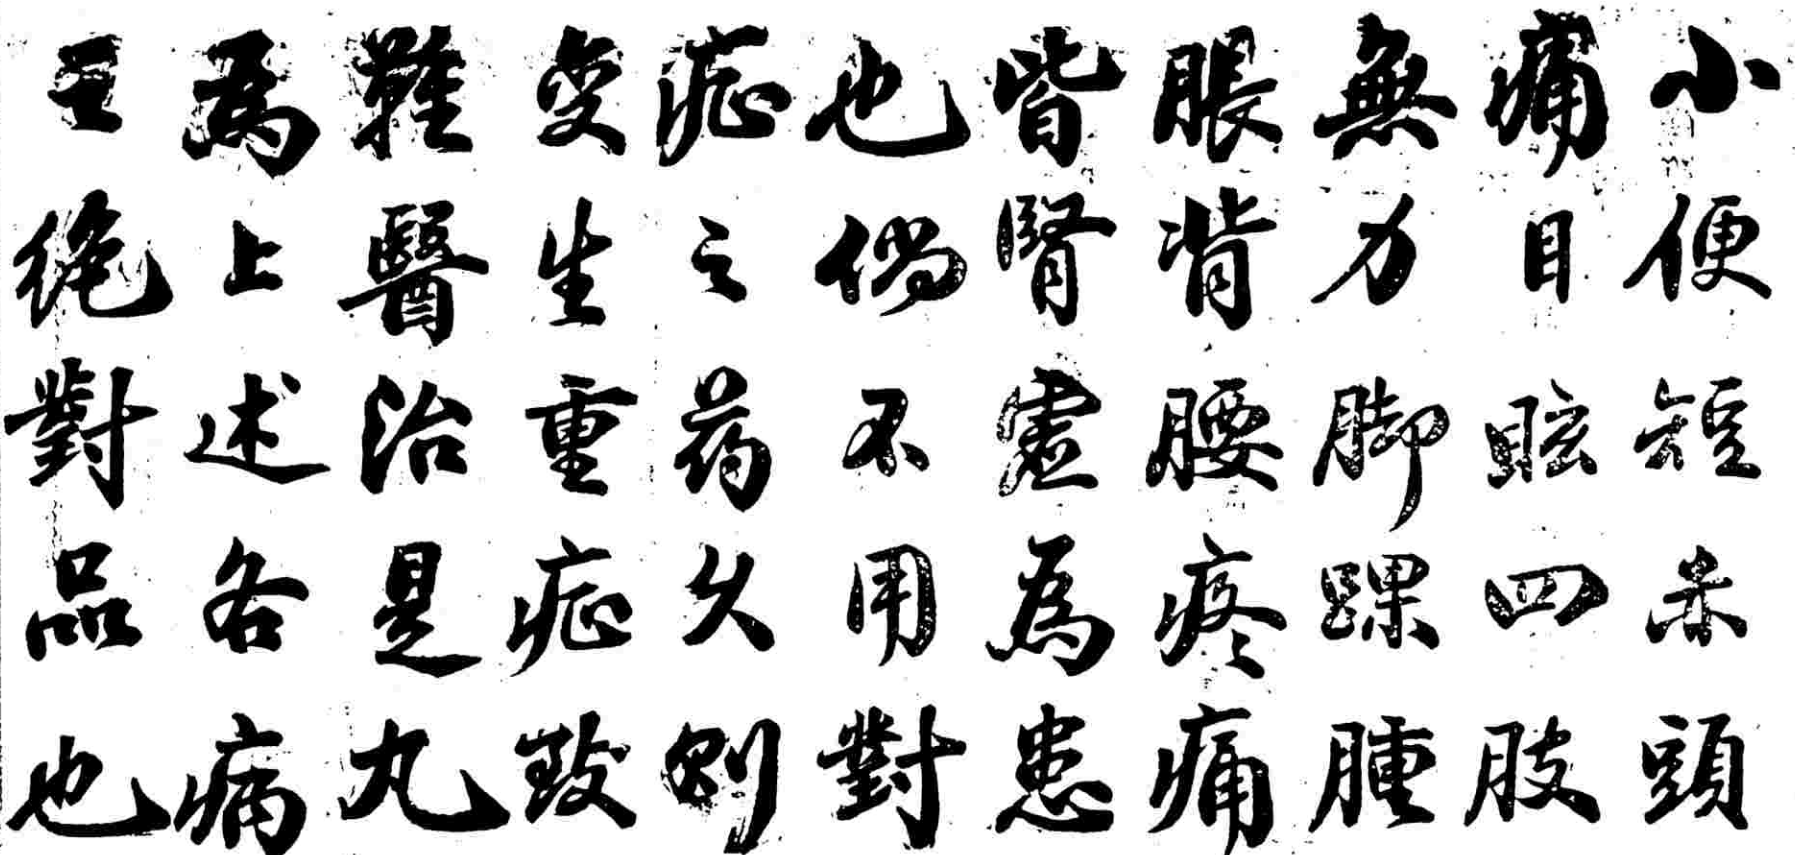 小便短赤頭
痛目眩四肢
無力脚踝腫
脹背腰疼痛
皆腎虛為患
也倘不用對
症之药久則
变生重症致
難醫治是丸
為上述各病
之绝對品也